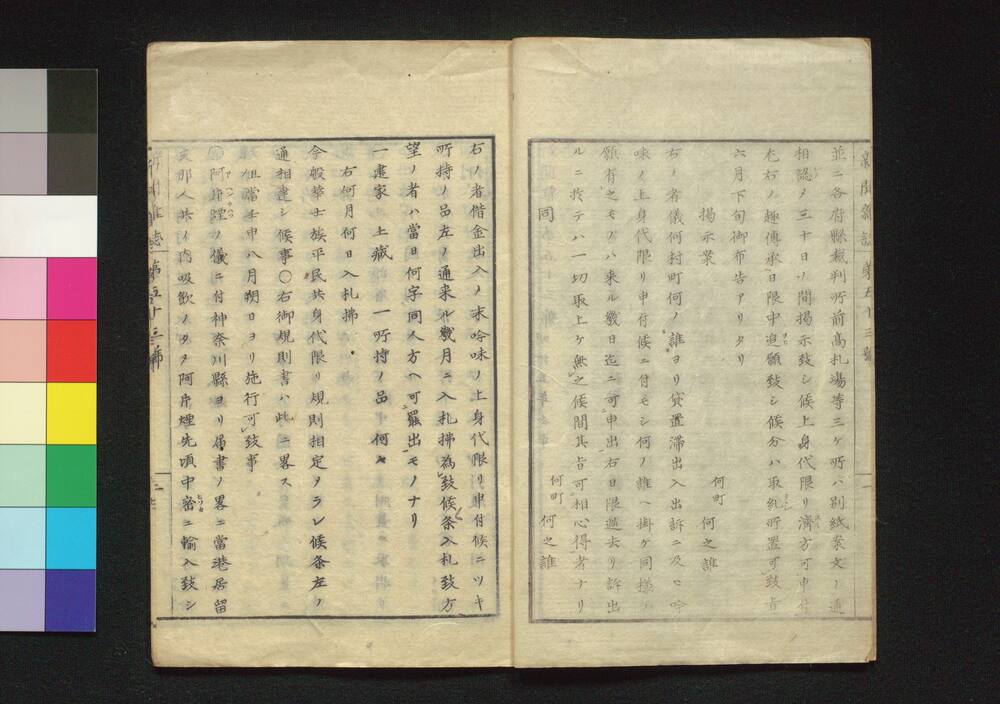 新聞雜誌 第五十三號 一
並ニ各府縣裁判所前高札場等三ケ所ハ別紙案文ノ通
相認メ三十日ノ間揭示致シ候上身代限リ濟方可申付
尤右ノ趣傳承日限中追願致シ候分ハ取糺所置可致旨
六月下旬御布告アリタリ
揭示案
何町 何之誰
右ノ者儀何村町何ノ誰ヨリ貸置滯出入出訴ニ及ヒ吟
味ノ上身代限リ申付候ニ付モシ何ノ誰ヘ掛ケ同樣ノ
願有之モノハ来ル幾日迄ニ可申出右日限過去リ訴出
ルニ於テハ一切取上ケ無之候間其旨可相心得者ナリ
同 何町 何之誰
右ノ者借金出入ノ末吟味ノ上身代限リ申付候ニツキ
所持ノ品左ノ通来ル幾月ニ入札拂為致候条入札致方
望ノ者ハ當日何字同人方ヘ可罷出モノナリ
一建家 一土藏 一所持ノ品 何々
右何月何日入札拂
今般華士族平民共身代限リ規則相定メラレ候条左ノ
通相達シ候事〇右御規則書ハ此ニ畧ス
但當壬申八月朔日ヨリ施行可致事
〇阿片煙ノ儀ニ付神奈川縣ヨリ届書ノ畧ニ當港居留
支那人共ノ内吸飲ノタメ阿片煙先頃中密ニ輸入致シ
新聞雜誌 第五十三號 二